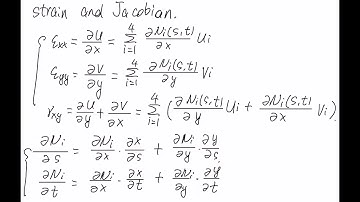 strain and Jacobian.
εxx = ∂u/∂x = Σ_{i=1}^{4} ∂Ni(s,t)/∂x Ui
εyy = ∂v/∂y = Σ_{i=1}^{4} ∂Ni(s,t)/∂y Vi
γxy = ∂u/∂y + ∂v/∂x = Σ_{i=1}^{4} (∂Ni(s,t)/∂y Ui + ∂Ni(s,t)/∂x Vi)
∂Ni/∂s = ∂Ni/∂x · ∂x/∂s + ∂Ni/∂y · ∂y/∂s
∂Ni/∂t = ∂Ni/∂x · ∂x/∂t + ∂Ni/∂y · ∂y/∂t